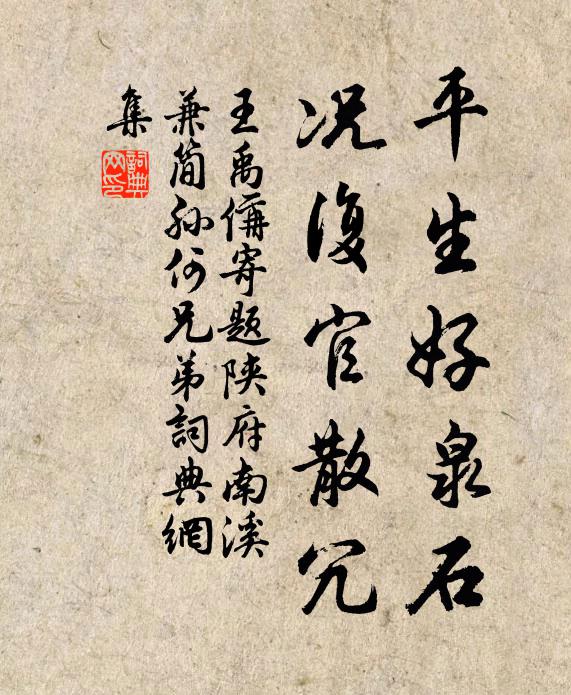 平生好泉石
况復官散冗
王禹偁寄題陝府南溪
兼簡孙何兄弟詞典網
集
詞典网印